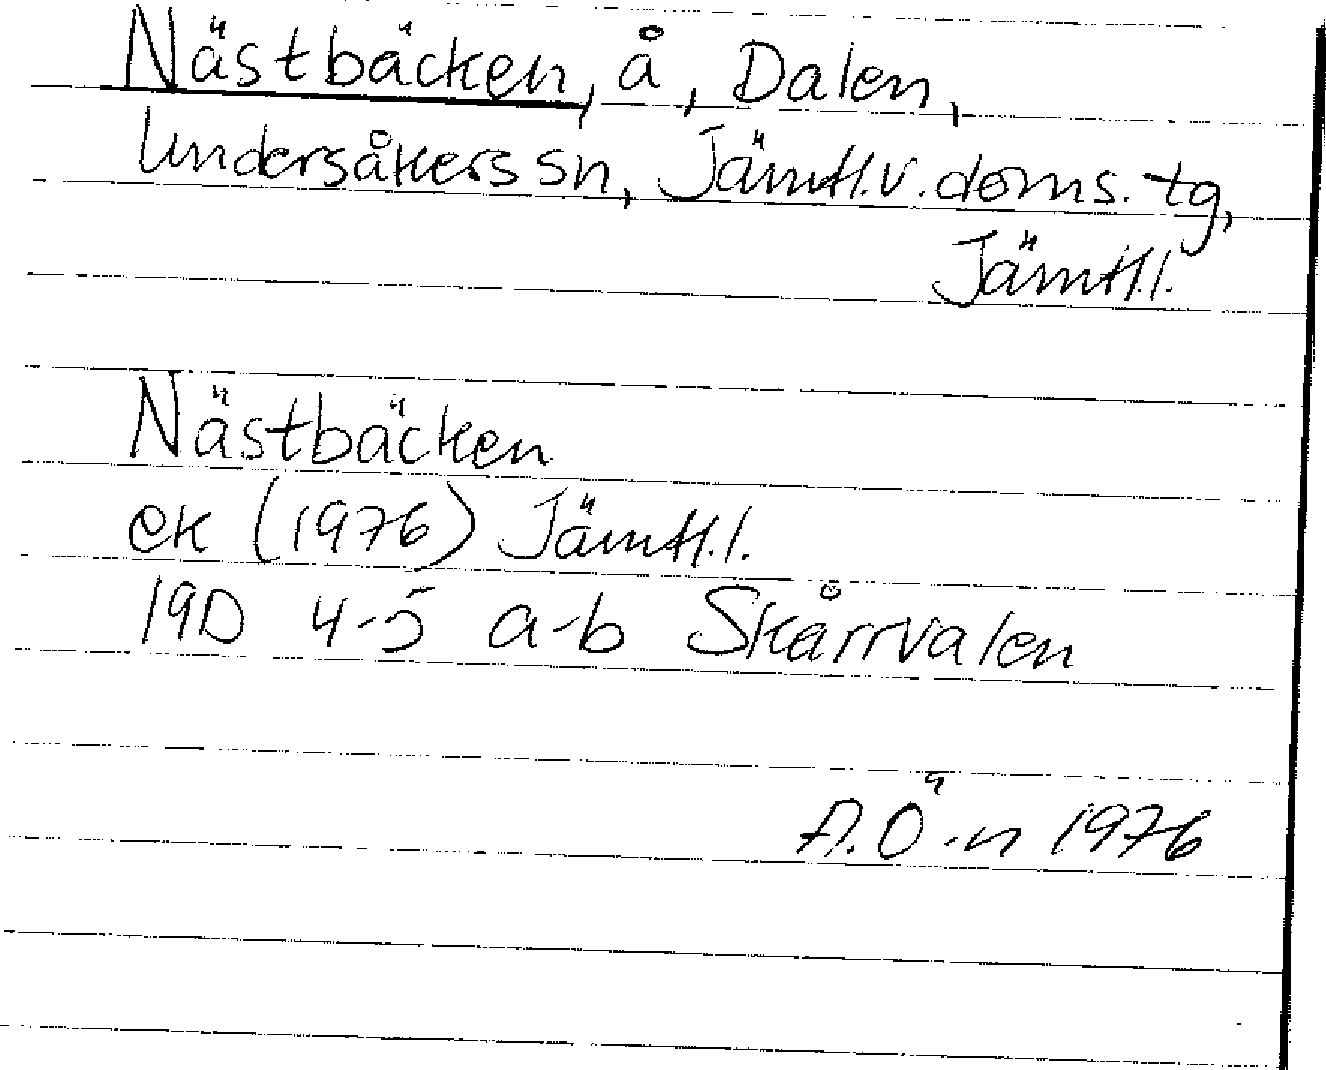 Nästbäcken, å, Dalen,
Undersåkers sn, Jämtl.v.doms. tg,
Jämtl.l.
Nästbäcken
ek (1976) Jämtl.l.
19D 4-5 a-b Skårrvalen
A.Ö-n 1976